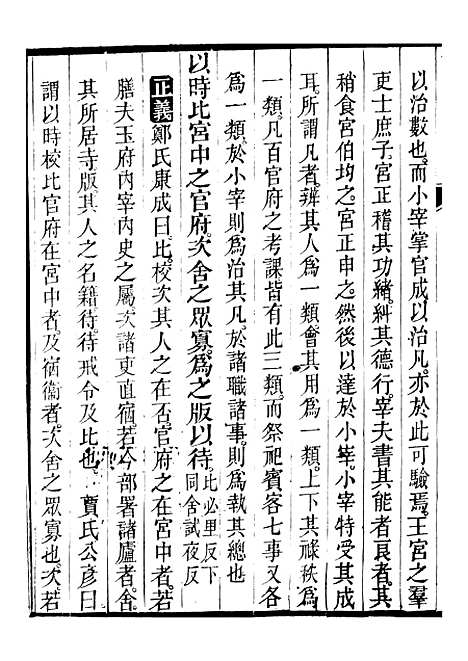 以治數也而小宰掌官成以治凡亦於此可驗焉王宮之羣
吏士庶子宮正稽其功緒糾其德行宰夫書其能者良者其
稍食宮伯均之宮正申之然後以達於小宰小宰特受其成
耳所謂凡者辨其人爲一類會其用爲一類上下其祿秩爲
一類凡百官府之考課皆有此三類而祭祀賓客七事又各
爲一類於小宰則爲治其凡於諸職諸事則爲執其總也
以時比宮中之官府次舍之眾寡爲之版以待比必里反下同舍試夜反
正義鄭氏康成曰比校次其人之在否官府之在宮中者若
膳夫玉府內宰內史之屬次諸吏直宿若今部署諸廬者舍
其所居寺版其人之名籍待待戒令及比也賈氏公彥曰
謂以時校比官府在宮中者及宿衞者次舍之眾寡也次若